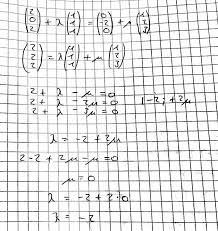 (2 0 2) + λ (1 1 1) = (0 -2 0) + μ (1 3 3)
(2 2 2) = λ (1 1 1) + μ (1 3 3)
2 + λ - μ = 0
2 + λ - 3μ = 0
2 + λ - 3μ = 0
λ = -2 + 3μ
2 - 2 + 2μ - μ = 0
μ = 0
λ = -2 + 2·0
λ = -2